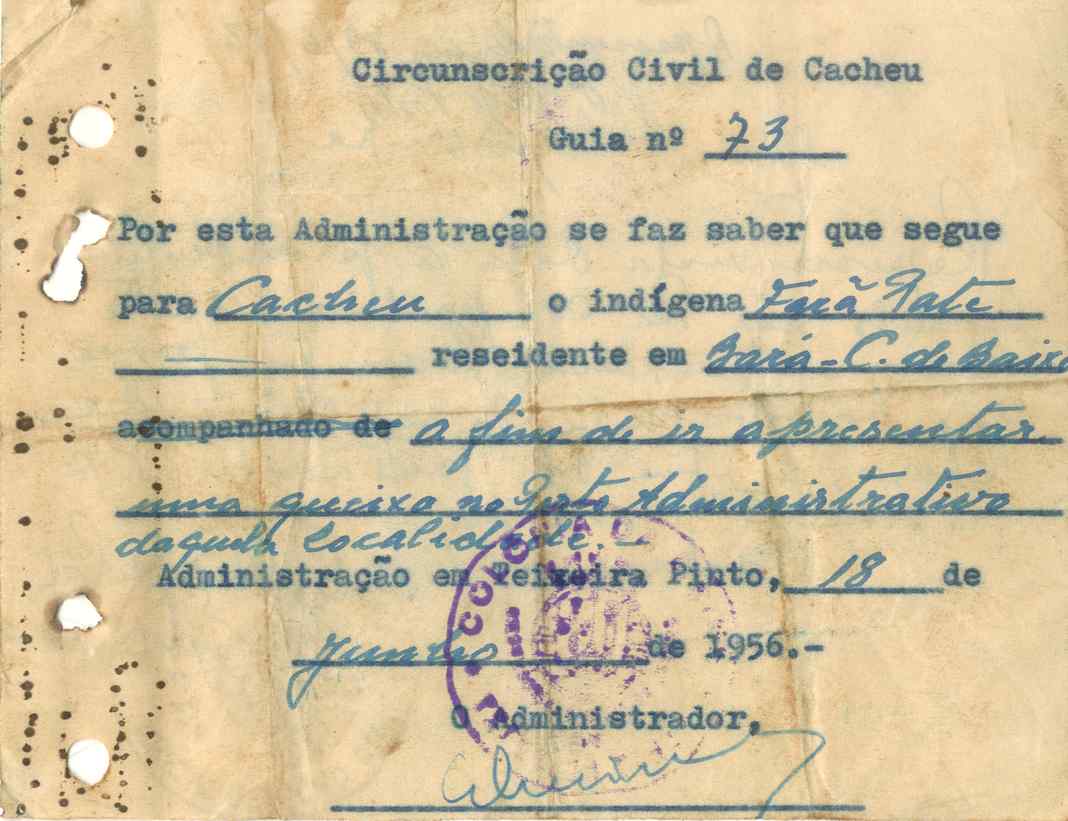 Circunscrição Civil de Cacheu
Guia nº 73
Por esta Administração se faz saber que segue
para Cacheu o indígena
reseidente em Bará - C. de Baixo
acompanhado de a fim de ir apresentar
uma queixa no Posto Administrativo
daquela localidade. —
Administração em Teixeira Pinto, 18 de
Junho de 1956.-
O Administrador,